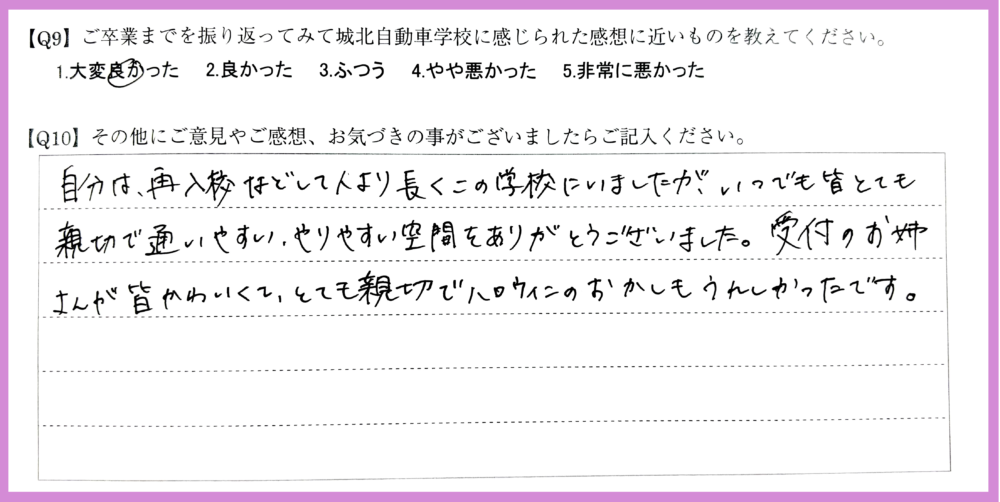 【Q9】ご卒業までを振り返ってみて城北自動車学校に感じられた感想に近いものを教えてください。
1.大変良かった 2.良かった 3.ふつう 4.やや悪かった 5.非常に悪かった
【Q10】その他にご意見やご感想、お気づきの事がございましたらご記入ください。
自分は、再入校などして人より長くこの学校にいましたが、いつでも皆とても
親切で通いやすい、やりやすい空間をありがとうございました。受付のお姉
さんが皆かわいくて、とても親切でハロウィンのおかしもうれしかったです。